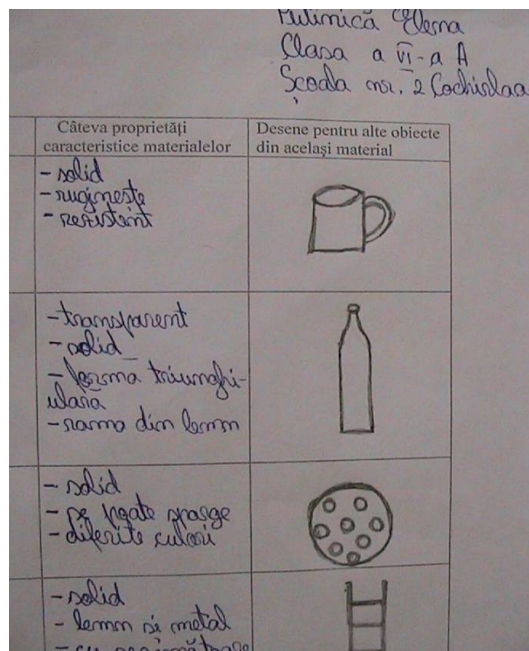 Elena
Clasa a VI-a A
Școala nr. 2 Cochirlea
Câteva proprietăți
caracteristice materialelor
Desene pentru alte obiecte
din același material
- solid
- ruginește
- rezistent
- transparent
- solid
- forma triunghi-
ulară
- rama din lemn
- solid
- se poate sparge
- diferite culori
- solid
- lemn si metal
- cu